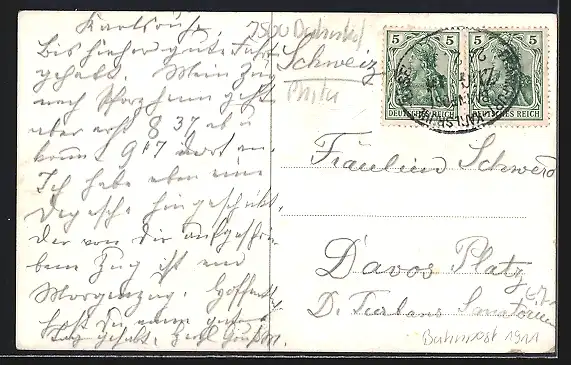 Karlsruhe.
Bis hieher gute Fahrt
gehabt. Mein Zug
nach Pforzheim geht
aber erst 8 37 ab u
kommt 9 17 dort an.
Ich habe eben eine
Depesche hingeschickt,
Der von Dir aufgeschrie
bene Zug ist ein
Morgenzug. Hoffentlich
hast Du einen guten
Tag gehabt. Herzl
7500
Schweiz
5
5
DEUTSCHES REICH
DEUTSCHES REICH
Fräulein Schwerd
Davos Platz
D. Turbans Sanatorium
Bahnpost 1911